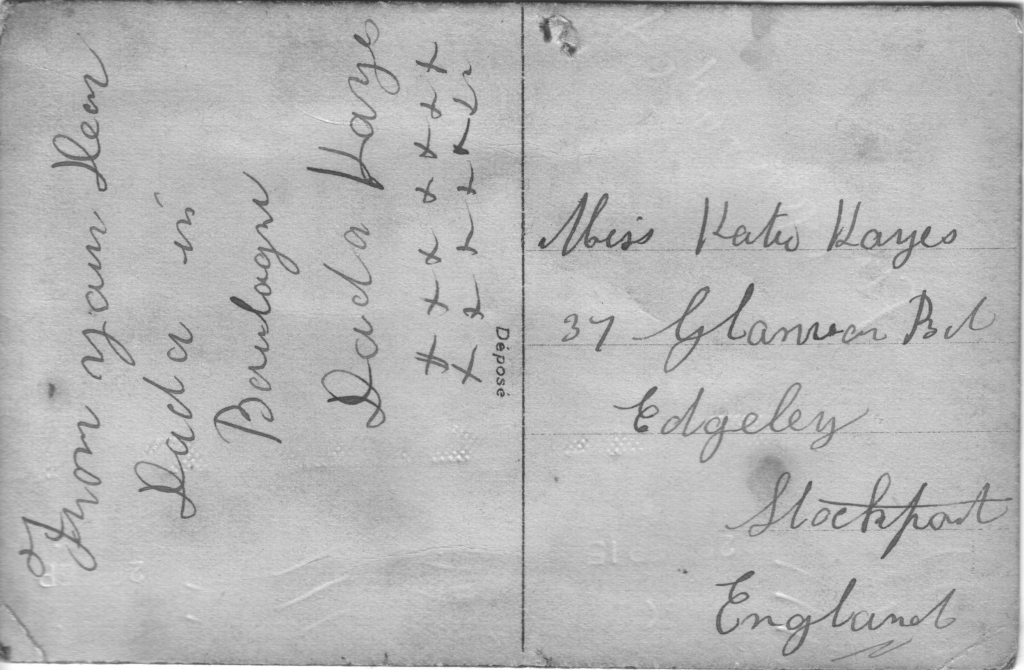 From your Dear
Dada in
Boulogne
Dada Kayes
x x x x x x x x
x x x x x x x
Déposé
Miss Katie Kayes
37 Glanvor Rd
Edgeley
Stockport
England